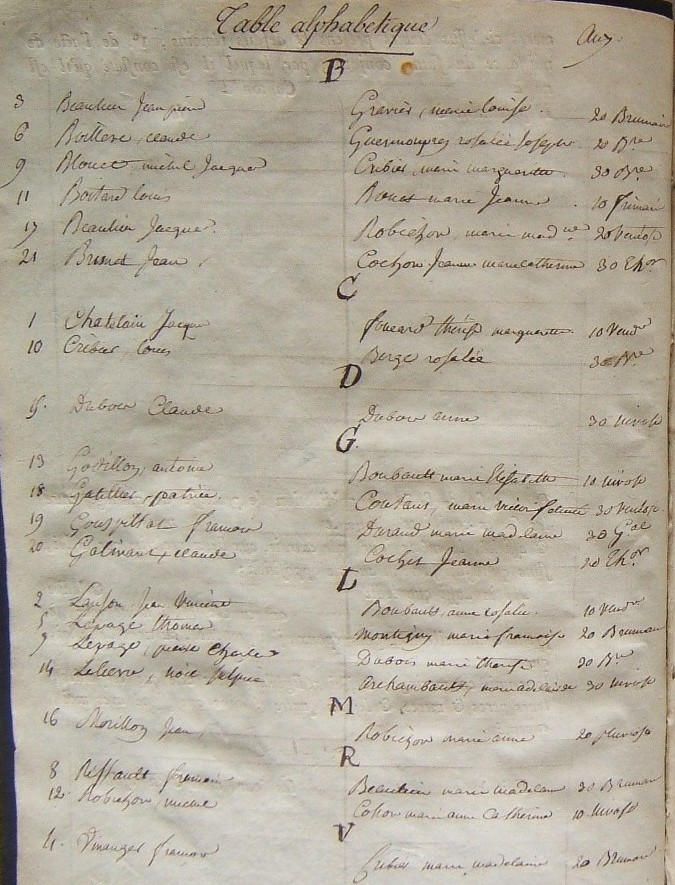 Table alphabetique
B
3 Beaulieu Jean pierre Gravier, marie louise. 20 Brumair
6 claude rosalie Joseph 20 Bre
9 michel Jacques Cribier, marie marguerite 30 Bre
11 Boitard louis marie Jeanne. 10 frimair
17 Beaulieu Jacques. Robichon, marie madne 20 Ventose
21 Brunet Jean, Cochon Jeanne marie catherine 30 Thor
C
1 Chatelain Jacque foucard thérèse marguerite 10 Vendre
10 Cribier, louis Berge rosalie
D
15. Dubois Claude Dubois anne 30 nivose
G.
13 Godillon, antoine Boubault marie Elisabeth 10 nivose
18 patrice. Coutant, marie victoire 30 Ventose
19 françois Durand marie madelaine 30 Gal
20 claude Cochet Jeanne 20 Thor
L
2 Jean Vincent Boubault, anne rosalie. 10 Vendre
5 Lepage thomas Montigny marie françoise 20 Brumair
7 Lepage, pierre Charles Dubois marie therese 30 Bre
14 Lelievre, Archambault, marie adelaide 30 nivose
M
16 Morillon Jean, Robichon marie anne 20 pluviose
R
8 françois Beaulieu marie madelaine 30 Brumair
12. Robichon, michel Cochon marie anne Catherine 10 Nivose
V
4. françois Cribier marie madelaine 20 Brumair